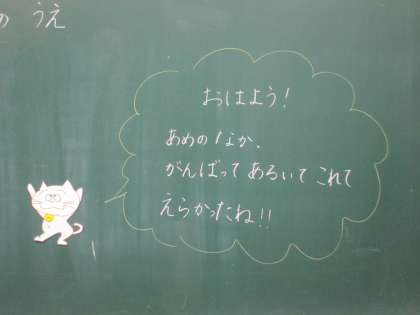 の うえ
おはよう!
あめのなか、
がんばって あるいて これて
えらかったね!!